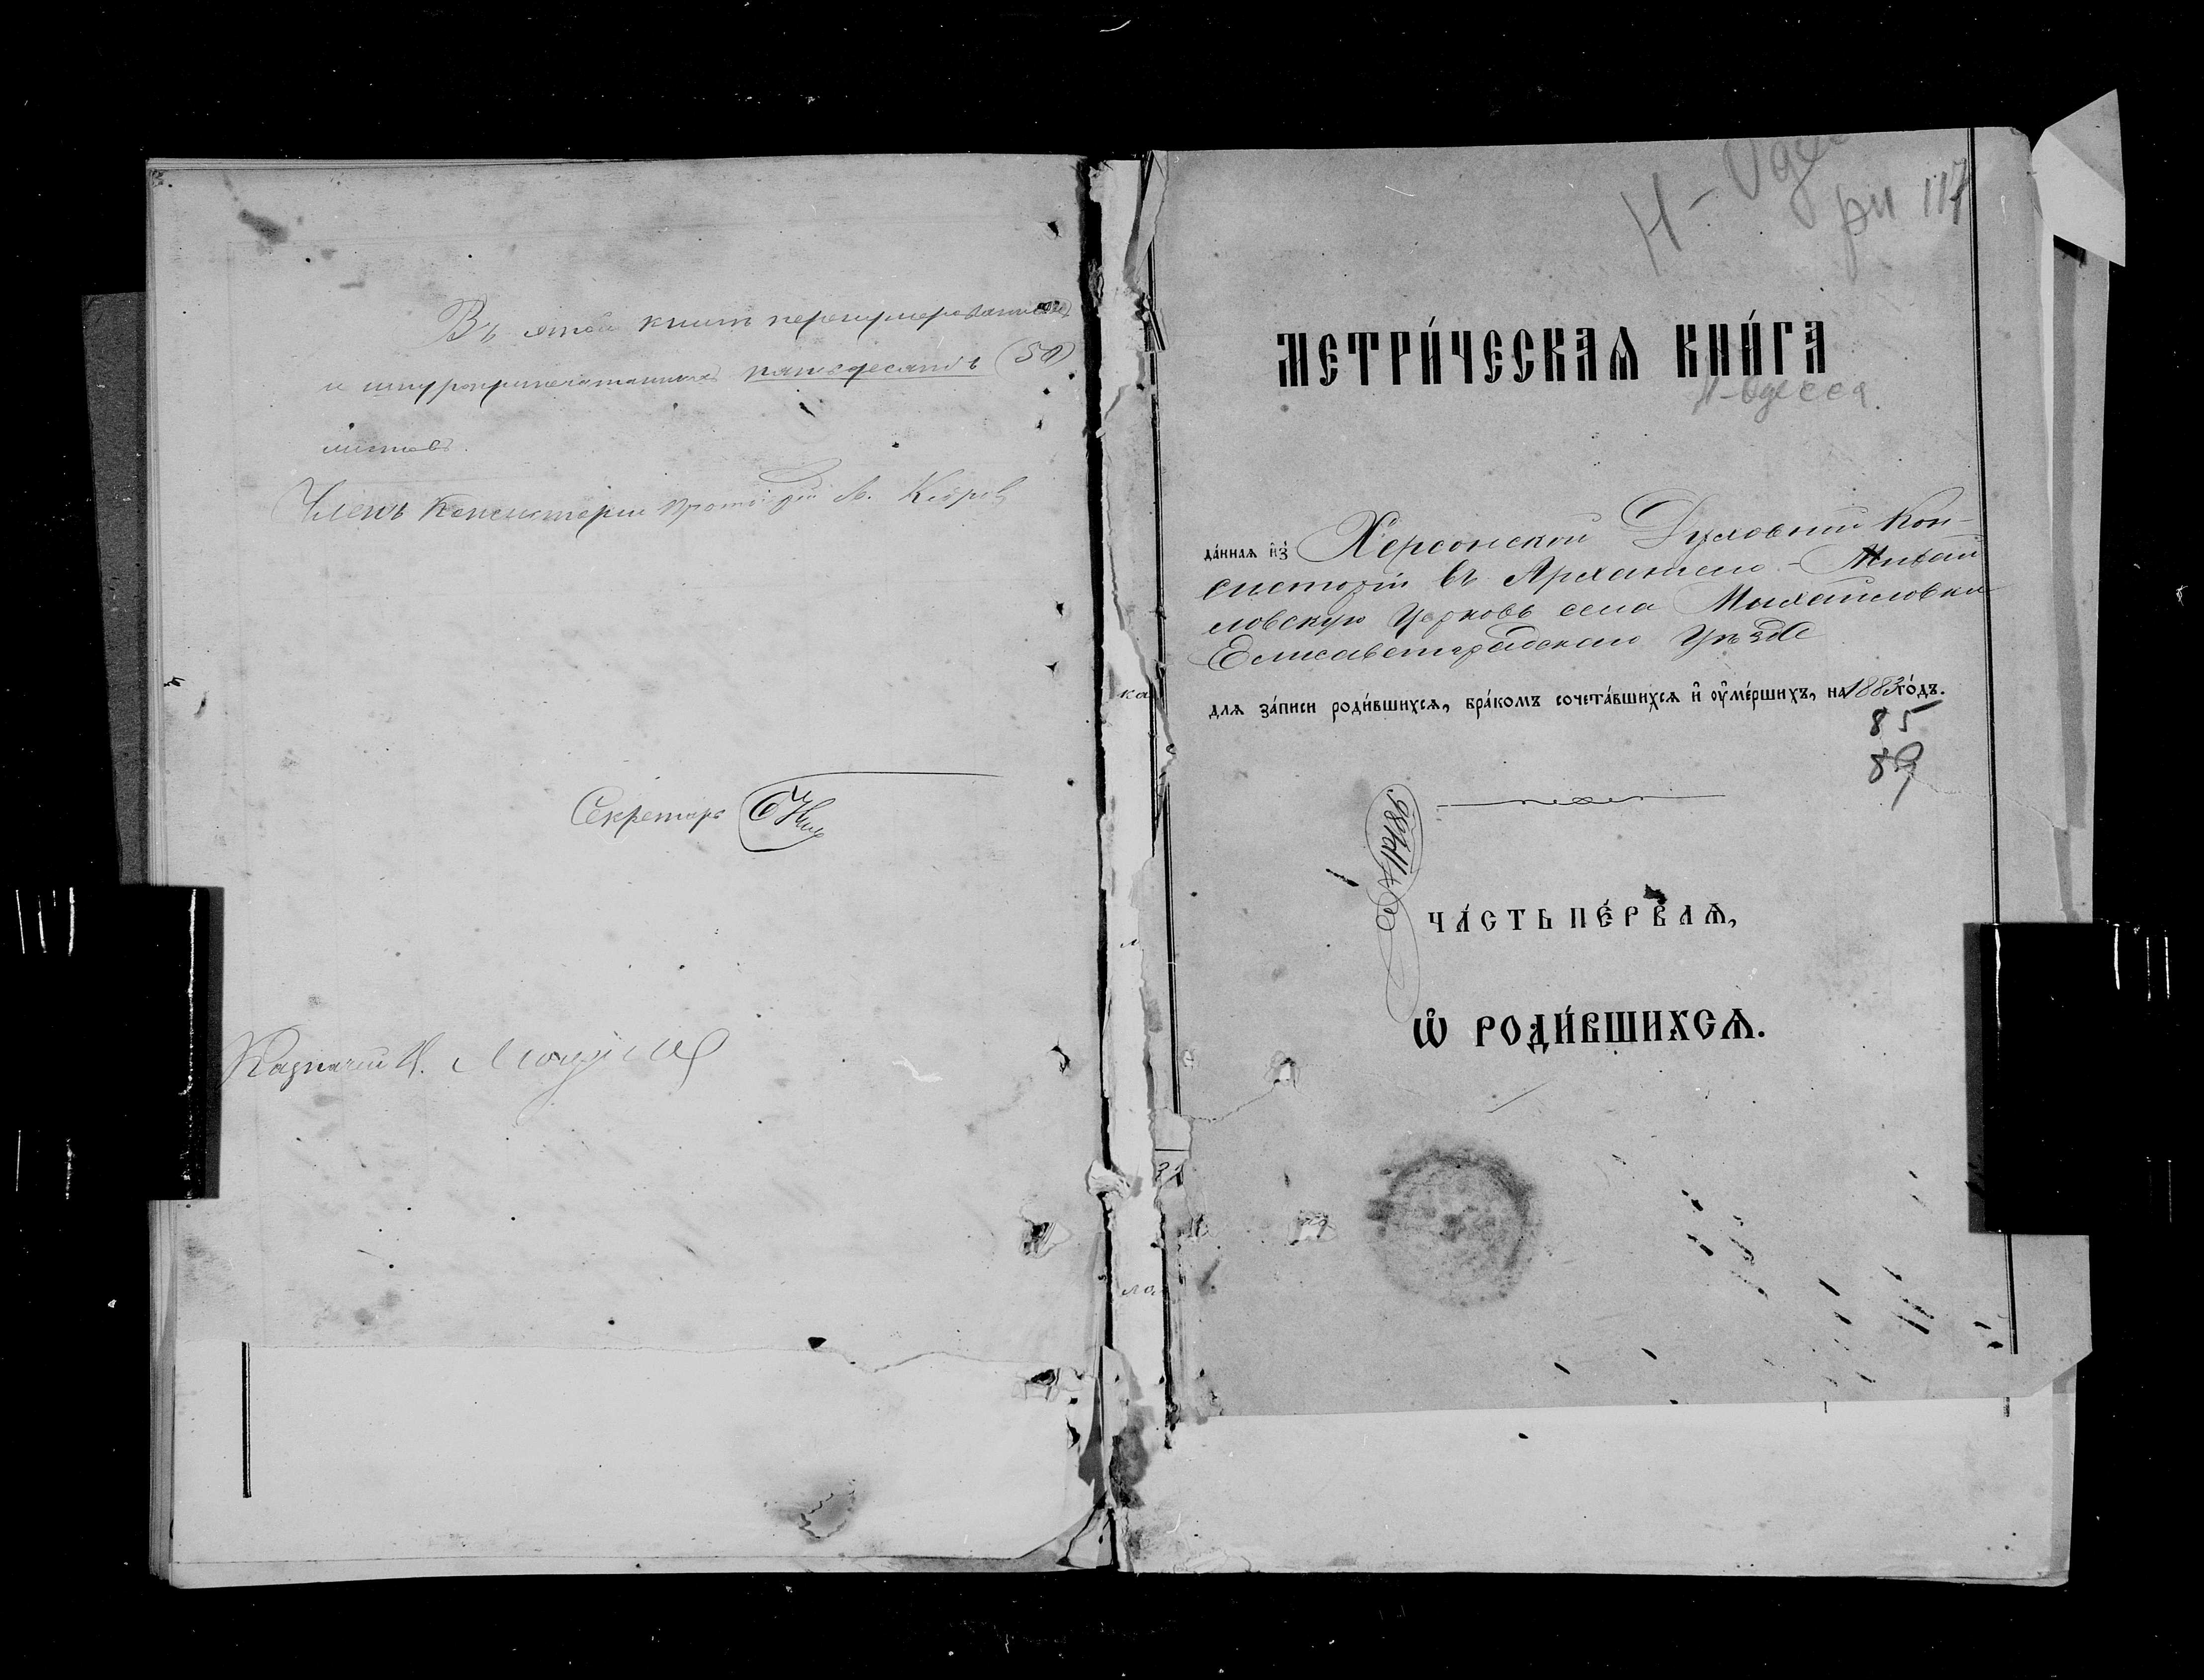 Въ этой книгѣ перенумерованныхъ
и шнуроприпечатанныхъ пятьдесятъ (50)
листовъ.
Членъ Консисторіи
Секретарь
Казначей
Н-Оде
рн 117
МЕТРИ́ЧЕСКАѦ КНИ́ГА
Н-Одесса.
да́нная и҆з̾ Херсонской Духовной Кон-
систоріи въ Архангело-Михай
ловскую Церковь села Михайловки
Елисаветградскаго Уѣзда
для за́писи роди́вшихся, бра́комъ сочета́вшихся и҆ оу҆ме́ршихъ, на 1883 го́дъ.
85
89
ЧА́СТЬ ПЕ́РВАѦ,
Ѡ҆ РОДИ́ВШИХСѦ.